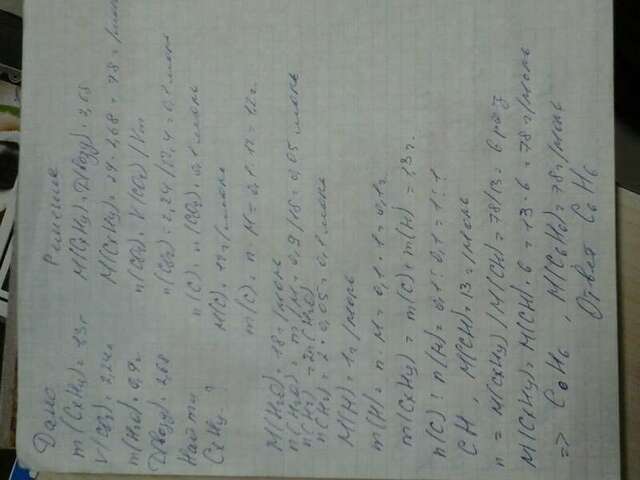 Дано
m(CxHy) = 1,3 г
V(CO2) = 2,24 л
m(H2O) = 0,9 г
D(возд) = 2,68
Найти
CxHy - ?
Решение
M(CxHy) = D(возд) · 2,68
M(CxHy) = 29 · 2,68 = 78 г/моль
n(CO2) = V(CO2)/Vm
n(CO2) = 2,24/22,4 = 0,1 моль
n(C) = n(CO2) = 0,1 моль
M(C) = 12 г/моль
m(C) = n · M = 0,1 · 12 = 1,2 г.
M(H2O) = 18 г/моль
n(H2O) = m/M = 0,9/18 = 0,05 моль
n(H2) = n(H2O)
n(H) = 2 · 0,05 = 0,1 моль
M(H) = 1 г/моль
m(H) = n · M = 0,1 · 1 = 0,1 г
m(CxHy) = m(C) + m(H) = 1,3 г.
n(C) : n(H) = 0,1 : 0,1 = 1 : 1
CH, M(CH) = 13 г/моль
n = M(CxHy)/M(CH) = 78/13 = 6 раз
M(CxHy) = M(CH) · 6 = 13 · 6 = 78 г/моль
=> C6H6, M(C6H6) = 78 г/моль
Ответ C6H6